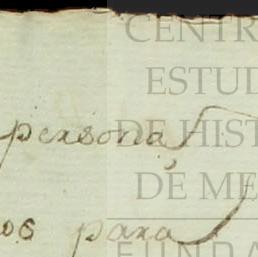 CENTR
ESTUD
DE HIST
DE ME
FUNDA
personas,
os para